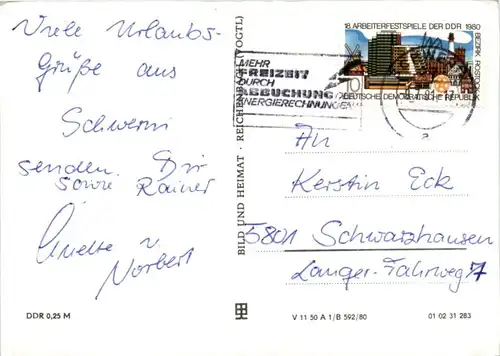 Viele Urlaubs-
grüße aus
Schwerin
senden Dir
sowie Rainer
Anette u
Norbert
DDR 0,25 M
BILD UND HEIMAT · REICHENBACH (VOGTL)
MEHR
FREIZEIT
DURCH
ABBUCHUNG
ENERGIERECHNUNGEN
18 ARBEITERFESTSPIELE DER DDR 1980
BEZIRK ROSTOCK
10
DEUTSCHE DEMOKRATISCHE REPUBLIK
a
An
Kerstin Eck
5801 Schwarzhausen
Langer-Fahrweg 7
V 11 50 A 1/B 592/80
01 02 31 283